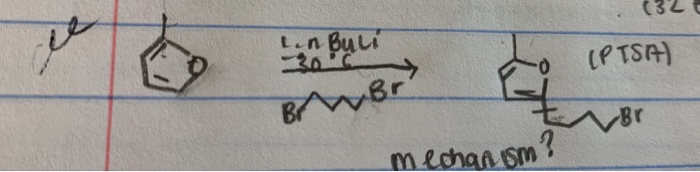 (32
1. n BuLi
-30°C
Br Br
O
O
(PTSA)
Br
mechanism?